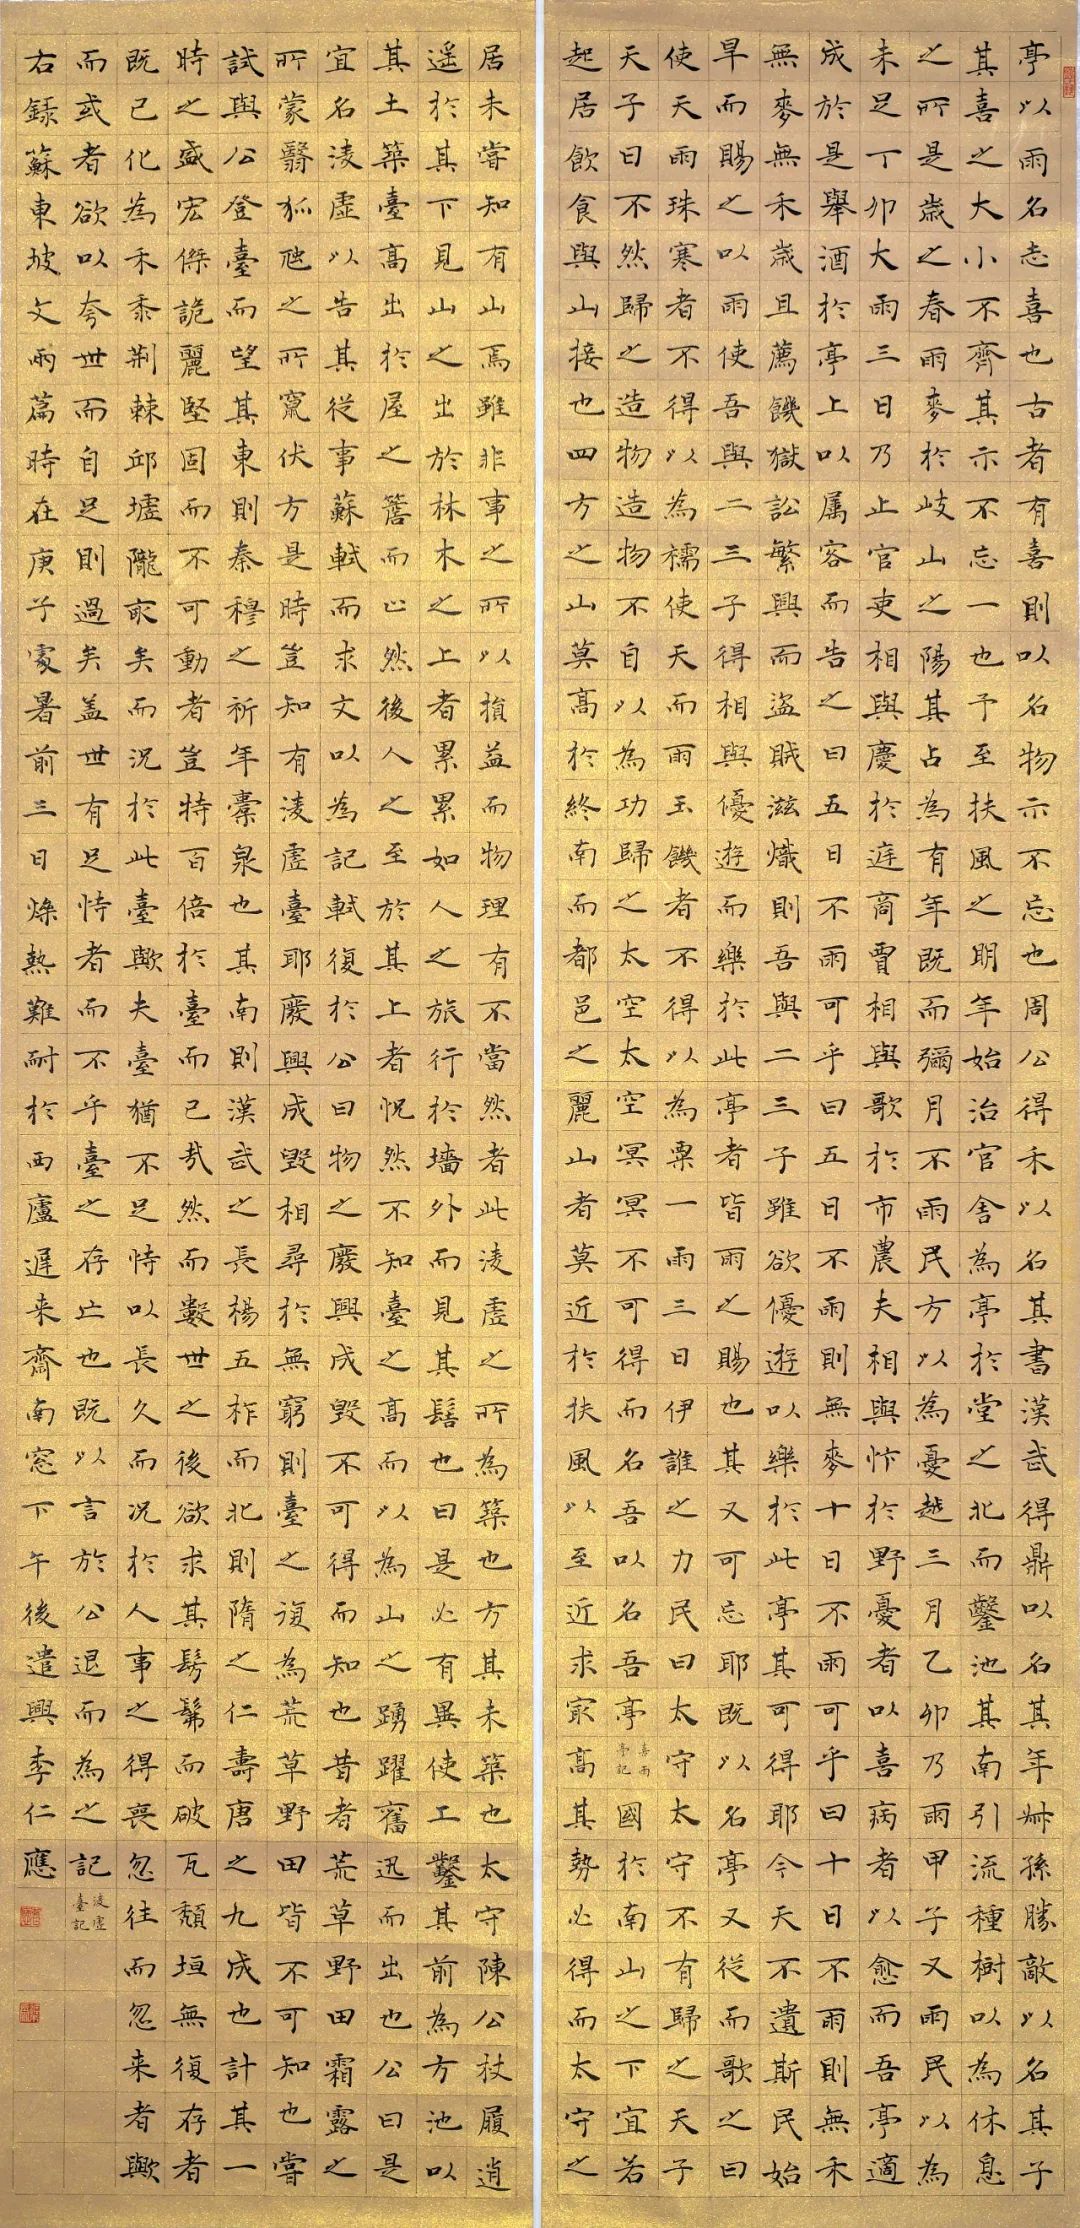 亭以雨名志喜也古者有喜則以名物示不忘也周公得禾以名其書漢武得鼎以名其年叔孫勝敵以名其子
其喜之大小不齊其示不忘一也予至扶風之明年始治官舍為亭於堂之北而鑿池其南引流種樹以為休息
之所是歲之春雨麥於岐山之陽其占為有年既而彌月不雨民方以為憂越三月乙卯乃雨甲子又雨民以為
未足丁卯大雨三日乃止官吏相與慶於庭商賈相與歌於市農夫相與忭於野憂者以喜病者以愈而吾亭適
成於是舉酒於亭上以属客而告之曰五日不雨可乎曰五日不雨則無麥十日不雨可乎曰十日不雨則無禾
無麥無禾歲且薦饑獄訟繁興而盜賊滋熾則吾與二三子雖欲優遊以樂於此亭其可得耶今天不遺斯民始
旱而賜之以雨使吾與二三子得相與優遊而樂於此亭者皆雨之賜也其又可忘耶既以名亭又從而歌之曰
使天雨珠寒者不得以為襦使天而雨玉饑者不得以為粟一雨三日伊誰之力民曰太守太守不有歸之天子
天子曰不然歸之造物造物不自以為功歸之太空太空冥冥不可得而名吾以名吾亭喜雨亭記國於南山之下宜若
起居飲食與山接也四方之山莫高於終南而都邑之麗山者莫近於扶風以至近求最高其勢必得而太守之
居未嘗知有山焉雖非事之所以損益而物理有不當然者此淩虛之所為築也方其未築也太守陳公杖履逍
遥於其下見山之出於林木之上者累累如人之旅行於墻外而見其髻也曰是必有異使工鑿其前為方池以
其土築臺高出於屋之簷而止然後人之至於其上者怳然不知臺之高而以為山之踴躍奮迅而出也公曰是
宜名淩虛以告其從事蘇軾而求文以為記軾復於公曰物之廢興成毀不可得而知也昔者荒草野田霜露之
所蒙翳狐虺之所竄伏方是時豈知有淩虛臺耶廢興成毀相尋於無窮則臺之復為荒草野田皆不可知也嘗
試與公登臺而望其東則秦穆之祈年橐泉也其南則漢武之長楊五柞而北則隋之仁壽唐之九成也計其一
時之盛宏傑詭麗堅固而不可動者豈特百倍於臺而已哉然而數世之後欲求其髣髴而破瓦頹垣無復存者
既已化為禾黍荊棘邱墟隴畝矣而況於此臺歟夫臺猶不足恃以長久而況於人事之得喪忽往而忽来者歟
而或者欲以夸世而自足則過矣蓋世有足恃者而不乎臺之存亡也既以言於公退而為之記淩虛臺記
右録蘇東坡文兩篇時在庚子處暑前三日燥熱難耐於西廬遲来齋南窓下午後遣興季仁應